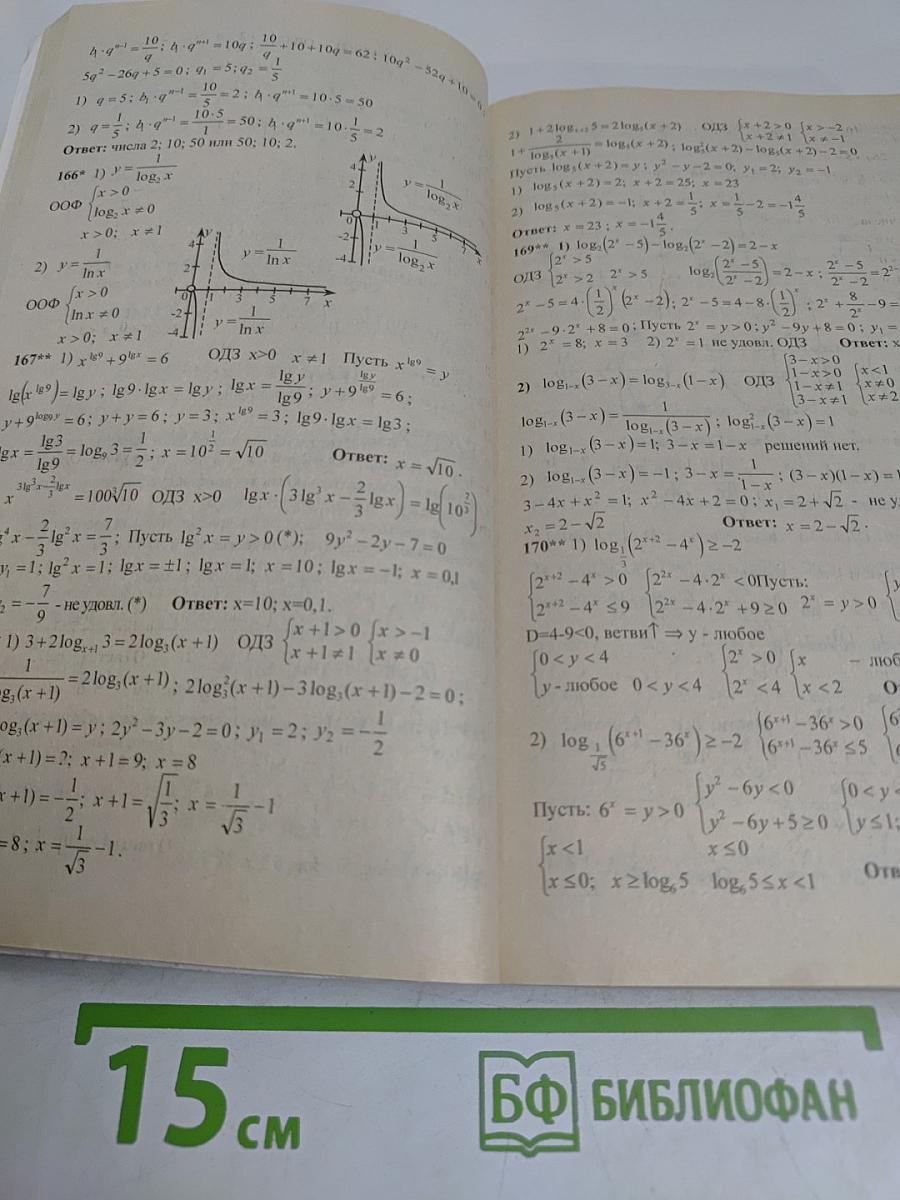 b₁·qⁿ⁻¹ = 10/q ; b₁·qⁿ⁺¹ = 10q ; 10/q + 10 + 10q = 62 ; 10q² − 52q + 10 = 0
5q² − 26q + 5 = 0 ; q₁ = 5 ; q₂ = 1/5
1) q = 5 ; b₁·qⁿ⁻¹ = 10/5 = 2 ; b₁·qⁿ⁺¹ = 10·5 = 50
2) q = 1/5 ; b₁·qⁿ⁻¹ = 10·5/1 = 50 ; b₁·qⁿ⁺¹ = 10·1/5 = 2
Ответ: числа 2; 10; 50 или 50; 10; 2.
166* 1) y = 1/log₂x
ООФ {x > 0
log₂x ≠ 0
x > 0; x ≠ 1
y
4
2
0
-2
-4
1 3 5 7 x
y = 1/log₂x
y = 1/log₂x
2) y = 1/ln x
ООФ {x > 0
ln x ≠ 0
x > 0; x ≠ 1
y
4
2
0
-2
-4
1 3 5 7 x
y = 1/ln x
y = 1/ln x
167** 1) x^(lg9) + 9^(lgx) = 6 ОДЗ x>0 x ≠ 1 Пусть x^(lg9) = y
lg(x^(lg9)) = lg y ; lg9·lgx = lg y ; lgx = lg y/lg9 ; y + 9^(lg y/lg9) = 6 ;
y + 9^(log₉y) = 6 ; y + y = 6 ; y = 3 ; x^(lg9) = 3 ; lg9·lgx = lg3 ;
lgx = lg3/lg9 = log₉3 = 1/2 ; x = 10^(1/2) = √10 Ответ: x = √10 .
x^(3lg³x − 2/3 lgx) = 100∛10 ОДЗ x>0 lgx·(3lg³x − 2/3 lgx) = lg(10^(7/3))
lg⁴x − 2/3 lg²x = 7/3 ; Пусть lg²x = y > 0 (*); 9y² − 2y − 7 = 0
y₁ = 1 ; lg²x = 1 ; lgx = ±1 ; lgx = 1; x = 10 ; lgx = −1; x = 0,1
₂ = −7/9 - не удовл. (*) Ответ: x=10; x=0,1.
1) 3 + 2log_(x+1) 3 = 2log₃(x+1) ОДЗ {x+1 > 0 {x > −1
x+1 ≠ 1 x ≠ 0
1/log₃(x+1) = 2log₃(x+1) ; 2log₃²(x+1) − 3log₃(x+1) − 2 = 0 ;
log₃(x+1) = y ; 2y² − 3y − 2 = 0 ; y₁ = 2 ; y₂ = −1/2
(x+1) = ?; x+1 = 9; x = 8
x+1) = −1/2 ; x+1 = √(1/3) ; x = 1/√3 − 1
= 8 ; x = 1/√3 − 1 .
2) 1 + 2log_(x+2) 5 = 2log₅(x+2) ОДЗ {x+2 > 0 {x > −2
x+2 ≠ 1 x ≠ −1
1 + 2/log₅(x+1) = log₅(x+2) ; log₅²(x+2) − log₅(x+2) − 2 = 0
Пусть log₅(x+2) = y ; y² − y − 2 = 0; y₁ = 2; y₂ = −1
1) log₅(x+2) = 2; x+2 = 25; x = 23
2) log₅(x+2) = −1; x+2 = 1/5 ; x = 1/5 − 2 = −1 4/5
Ответ: x = 23 ; x = −1 4/5 .
169** 1) log₂(2ˣ − 5) − log₂(2ˣ − 2) = 2 − x
ОДЗ {2ˣ > 5
2ˣ > 2 2ˣ > 5 log₂((2ˣ − 5)/(2ˣ − 2)) = 2 − x ; (2ˣ − 5)/(2ˣ − 2) = 2²⁻
2ˣ − 5 = 4·(1/2)ˣ(2ˣ − 2) ; 2ˣ − 5 = 4 − 8·(1/2)ˣ ; 2ˣ + 8/2ˣ − 9 =
2²ˣ − 9·2ˣ + 8 = 0 ; Пусть 2ˣ = y > 0 ; y² − 9y + 8 = 0 ; y₁ =
1) 2ˣ = 8; x = 3 2) 2ˣ = 1 не удовл. ОДЗ Ответ: x
2) log_(1−x)(3−x) = log_(3−x)(1−x) ОДЗ {3−x > 0
1−x > 0
1−x ≠ 1
3−x ≠ 1
{x < 1
x ≠ 0
x ≠ 2
log_(1−x)(3−x) = 1/log_(1−x)(3−x) ; log²_(1−x)(3−x) = 1
1) log_(1−x)(3−x) = 1; 3−x = 1−x решений нет.
2) log_(1−x)(3−x) = −1 ; 3−x = 1/(1−x) ; (3−x)(1−x) = 1
3 − 4x + x² = 1; x² − 4x + 2 = 0 ; x₁ = 2 + √2 - не у
x₂ = 2 − √2 Ответ: x = 2 − √2 .
170** 1) log_(1/3)(2ˣ⁺² − 4ˣ) ≥ −2
{2ˣ⁺² − 4ˣ > 0 {2²ˣ − 4·2ˣ < 0 Пусть:
2ˣ⁺² − 4ˣ ≤ 9 2²ˣ − 4·2ˣ + 9 ≥ 0 2ˣ = y > 0 {y
D=4-9<0, ветви↑ ⇒ y - любое
{0 < y < 4 {2ˣ > 0 {x – люб
y - любое 0 < y < 4 2ˣ < 4 x < 2 О
2) log_(1/√5)(6ˣ⁺¹ − 36ˣ) ≥ −2 {6ˣ⁺¹ − 36ˣ > 0 {6
6ˣ⁺¹ − 36ˣ ≤ 5
Пусть: 6ˣ = y > 0 {y² − 6y < 0 {0 < y <
y² − 6y + 5 ≥ 0 y ≤ 1;
{x < 1 x ≤ 0
x ≤ 0; x ≥ log₆5 log₆5 ≤ x < 1 Отв
15 см
БФ БИБЛИОФАН